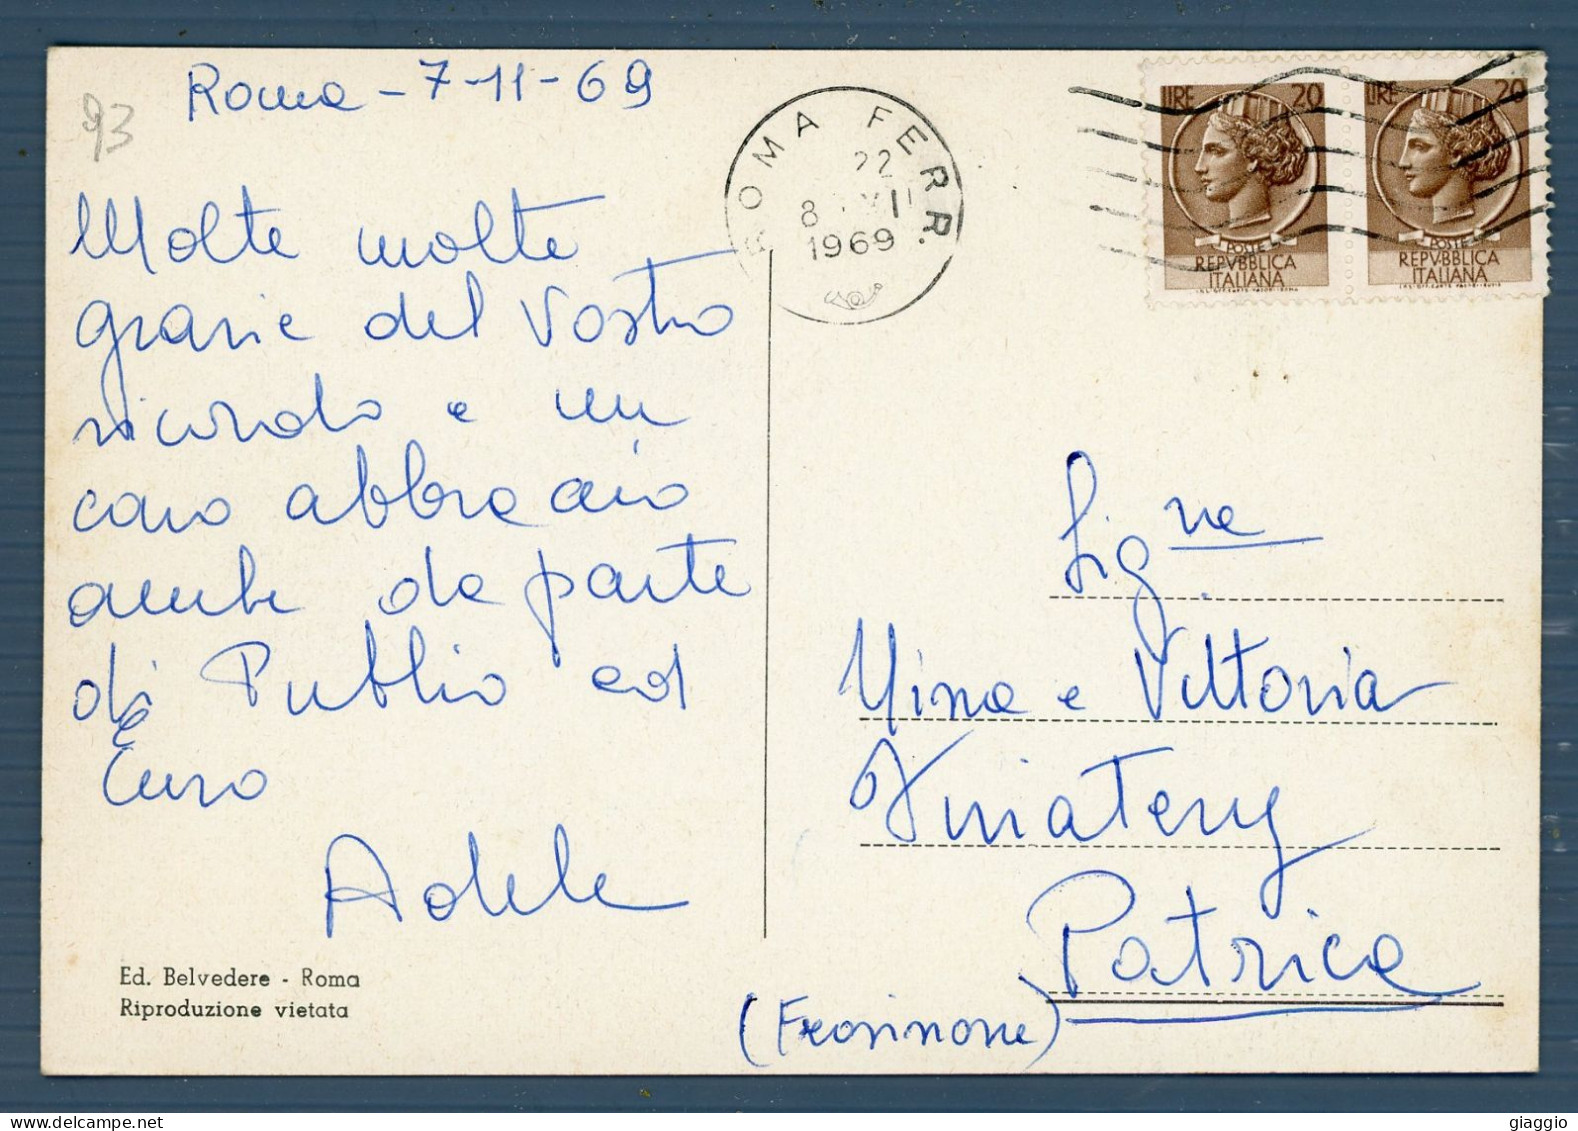 93
Roma - 7-11-69
Molte molte
grazie del Vostro
ricordo e un
caro abbraccio
anche da parte
di Publio ed
Enzo
Adele
Ed. Belvedere - Roma
Riproduzione vietata
ROMA FERR.
22
8
1969
LIRE 20
POSTE
REPVBBLICA
ITALIANA
LIRE 20
POSTE
REPVBBLICA
ITALIANA
Sig.ne
Mina e Vittoria
Patrica
(Frosinone)
giaggio